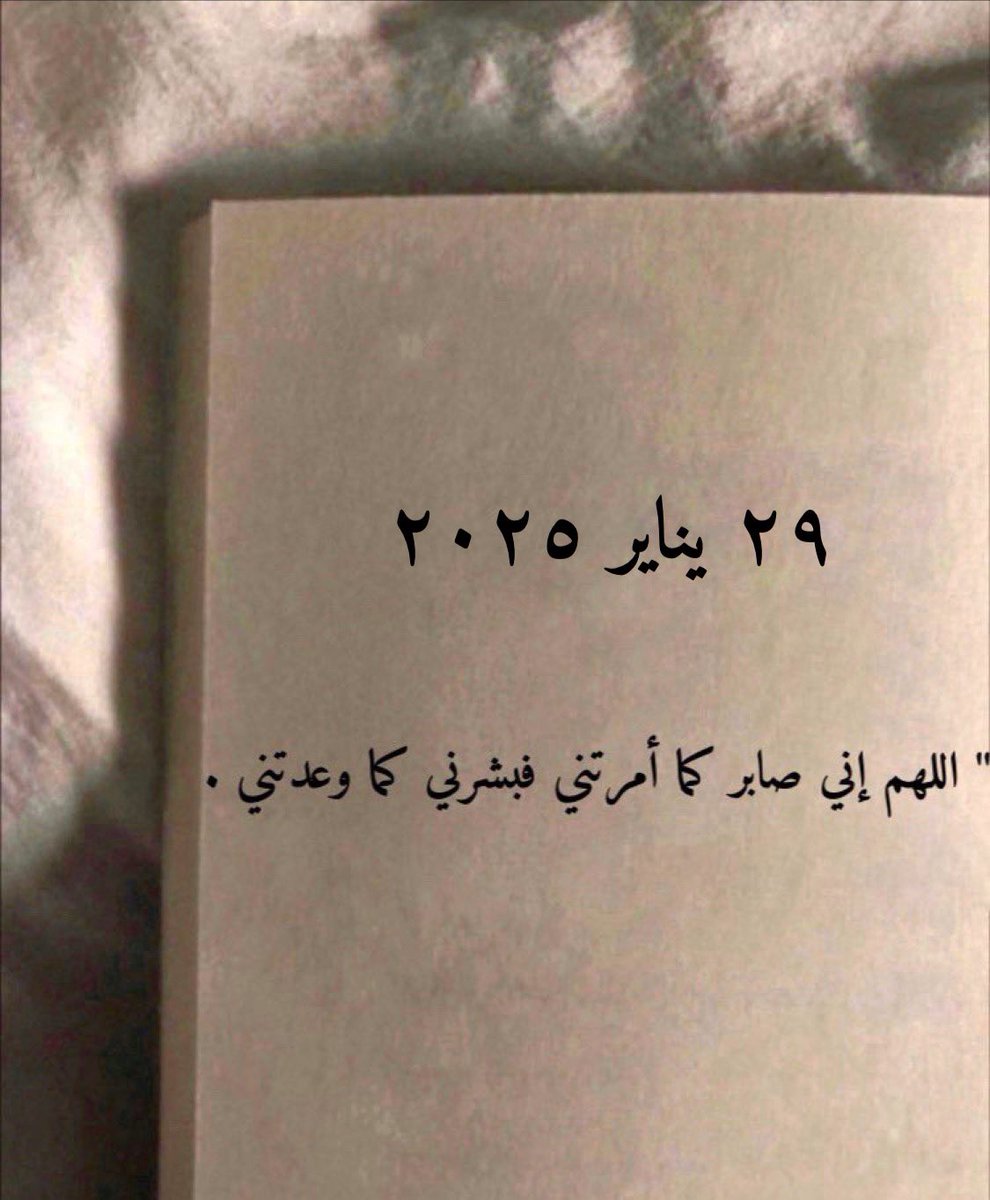 ٢٩ يناير ٢٠٢٥
" اللهم إني صابر كما أمرتني فبشرني كما وعدتني .